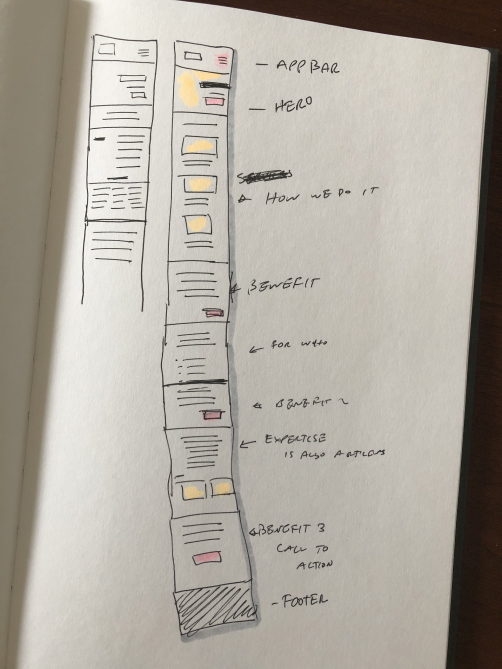 APP BAR
HERO
HOW WE DO IT
BENEFIT
FOR WHO
BENEFIT 2
EXPERTISE
IS ALSO ARTICLES
BENEFIT 3
CALL TO
ACTION
FOOTER